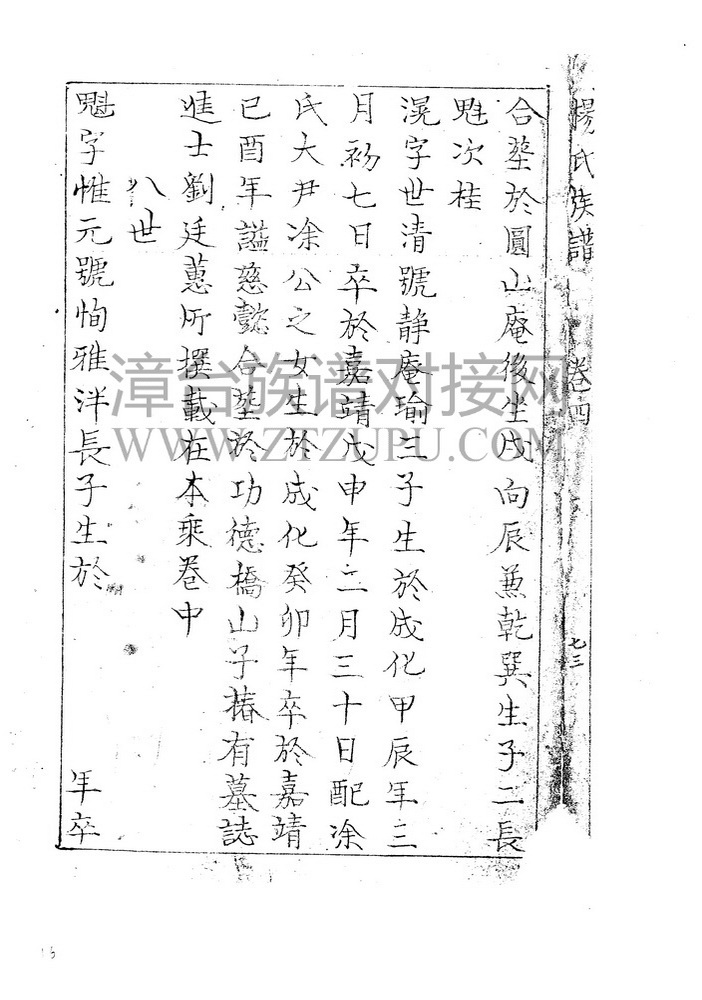 楊氏族譜 卷四 七三
合塟於圓山庵後坐戌向辰兼乾巽生子二長
魁次桂
滉字世清號静庵瑜三子生於成化甲辰年三
月初七日卒於嘉靖戊申年二月三十日配凃
氏大尹凃公之女生於成化癸卯年卒於嘉靖
己酉年謚慈懿合塟於功德橋山子椿有墓誌
進士劉廷蕙所撰載在本乘卷中
八世
魁字惟元號恂雅洋長子生於 年卒
漳台族谱对接网
WWW.ZTZUPU.COM
16